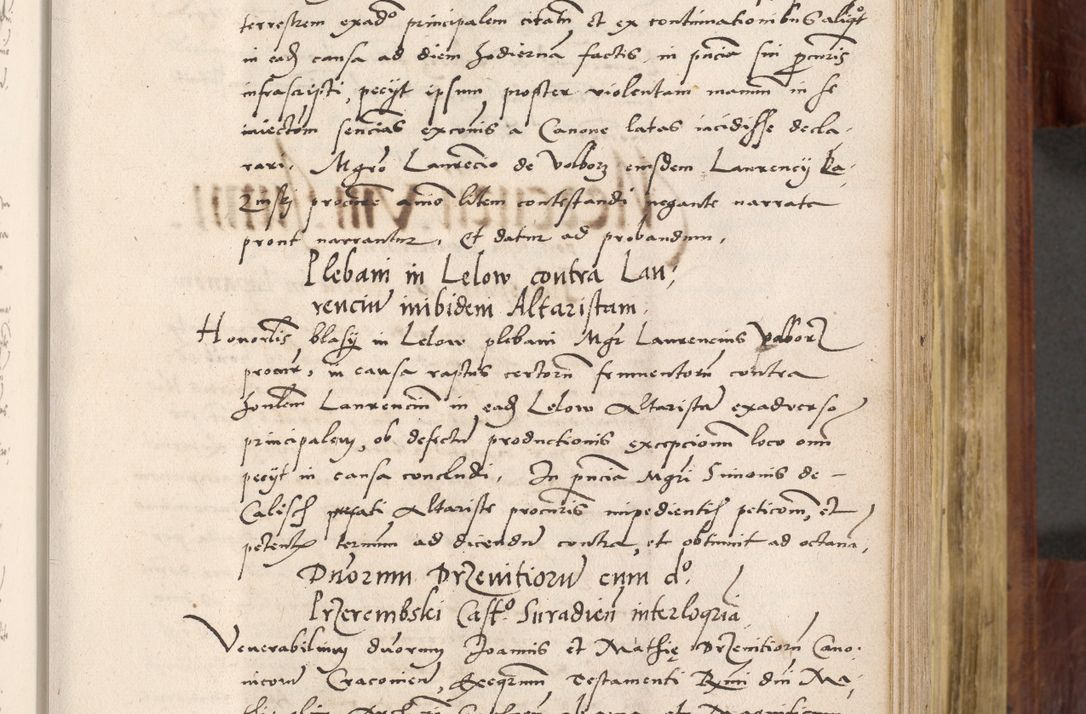 terrestrem exad͞o principalem citatu͞ et ex continuationibus aliq͞ot
in ead͞ causa ad diem hodierna͞ factis, in pn͞cia sui p͞curis
infrascripti, pecijt ipsum propter violentam manum in se
iniectam sen͞cias exco͞nis a Canone latas incidisse decla-
rari, Mg͞ro Laure͞ncio de Volborz eiusdem Laurencij Ka-
procure a͞nio litem contestandi negante narrata
prout narrantur, Et datur ad probandum,
Plebani in Lelow contra Lau,
renciu͞ inibidem Altaristam.
Hono͞rlis blasij in Lelow plebani Mg͞r Laurencius Volborz
procur, in causa raptus certoru͞ frumentoru͞ contra
hon͞lem Laurenciu͞ in ead͞ Lelow Altarista͞ exadverso
principalem, ob defectu͞ productionis excepcionu͞ loco o͞m
pecijt in causa concludi, In pn͞cia Mg͞ri Simonis de -
Calisch prefati Altariste procuris impedientis petico͞em, et
petentis terminu͞ ad dicendu͞ contra, et obtinuit ad octaua͞,
Duorum Drzeuitioru͞ cum d͞o.
Przerembski Cast͞o. Siradien͞ interloq͞ria
Venerabilium duorum Joannis et Mathię Drzeuitioru͞ Cano-
nicoru͞ Cracouien͞, Exeq͞rum Testamenti R͞mi d͞ni Ma-